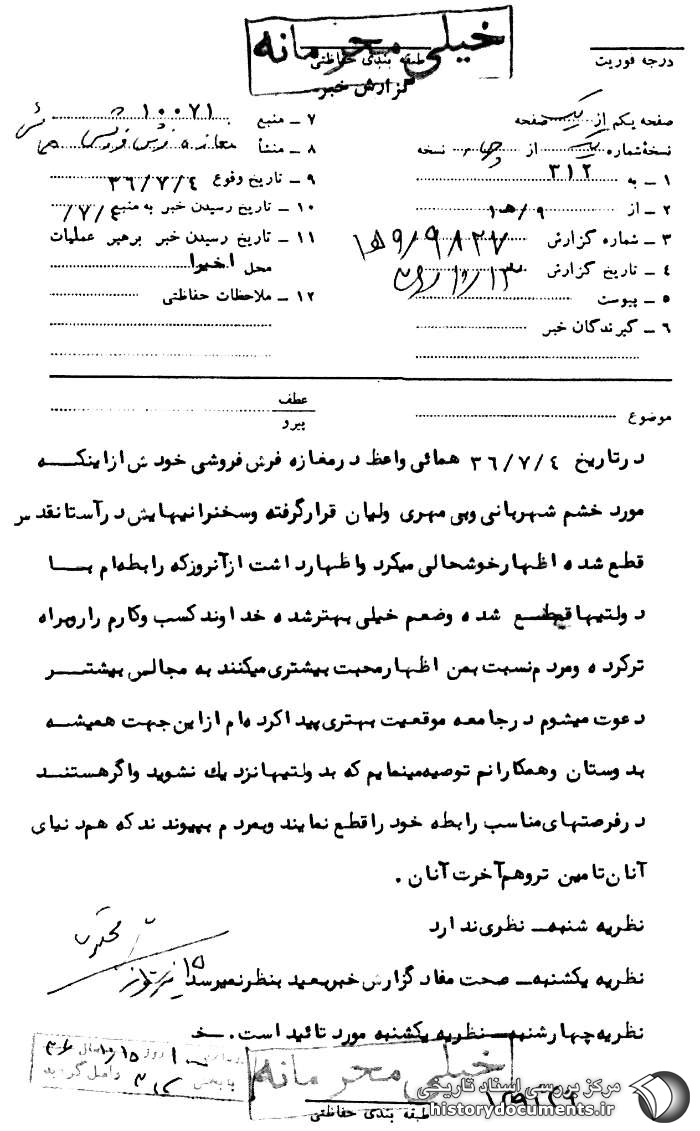 خیلی محرمانه
طبقه بندی حفاظتی
درجه فوریت
گزارش خبر
صفحه یکم از یک صفحه
نسخهٔ شماره یک از نسخه
۱ ـ به ۳۱۲
۲ ـ از ۹/ه۱
۳ ـ شماره گزارش ۹۸۲۷/۹ه۱
۴ ـ تاریخ گزارش
۵ ـ پیوست
۶ ـ گیرندگان خبر
۷ ـ منبع ۱۰۰۷۱
۸ ـ منشأ مغازه فرش فروشی
۹ ـ تاریخ وقوع ۳۶/۷/۴
۱۰ ـ تاریخ رسیدن خبر به منبع
۱۱ ـ تاریخ رسیدن خبر برهبر عملیات
محل اخیرا
۱۲ ـ ملاحظات حفاظتی
موضوع
عطف
پیرو
درتاریخ ۳۶/۷/۴ همائی واعظ درمغازه فرش فروشی خودش ازاینکه
مورد خشم شهربانی وبی مهری ولیان قرارگرفته وسخنرانیهایش درآستانقدس
قطع شده اظهارخوشحالی میکرد واظهارداشت ازآنروزکه رابطه‌ام با
دولتیها قطع شده وضعم خیلی بهترشده خداوند کسب وکارم راروبراه
ترکرده ومردم نسبت بمن اظهارمحبت بیشتری میکنند به مجالس بیشتر
دعوت میشوم درجامعه موقعیت بهتری پیداکرده‌ام ازاین جهت همیشه
بدوستان وهمکارانم توصیه مینمایم که بدولتیها نزدیك نشوید واگرهستند
درفرصتهای مناسب رابطه خود راقطع نمایند وبمردم بپیوندند که هم دنیای
آنان تامین تروهم آخرت آنان .
نظریه شنبه ـ نظری ندارد
نظریه یکشنبه ـ صحت مفاد گزارش خبربعید بنظرنمیرسد
نظریه چهارشنبه ـ نظریه یکشنبه مورد تائید است .
خیلی محرمانه
طبقه بندی حفاظتی
مرکز بررسی اسناد تاریخی
historydocuments.ir